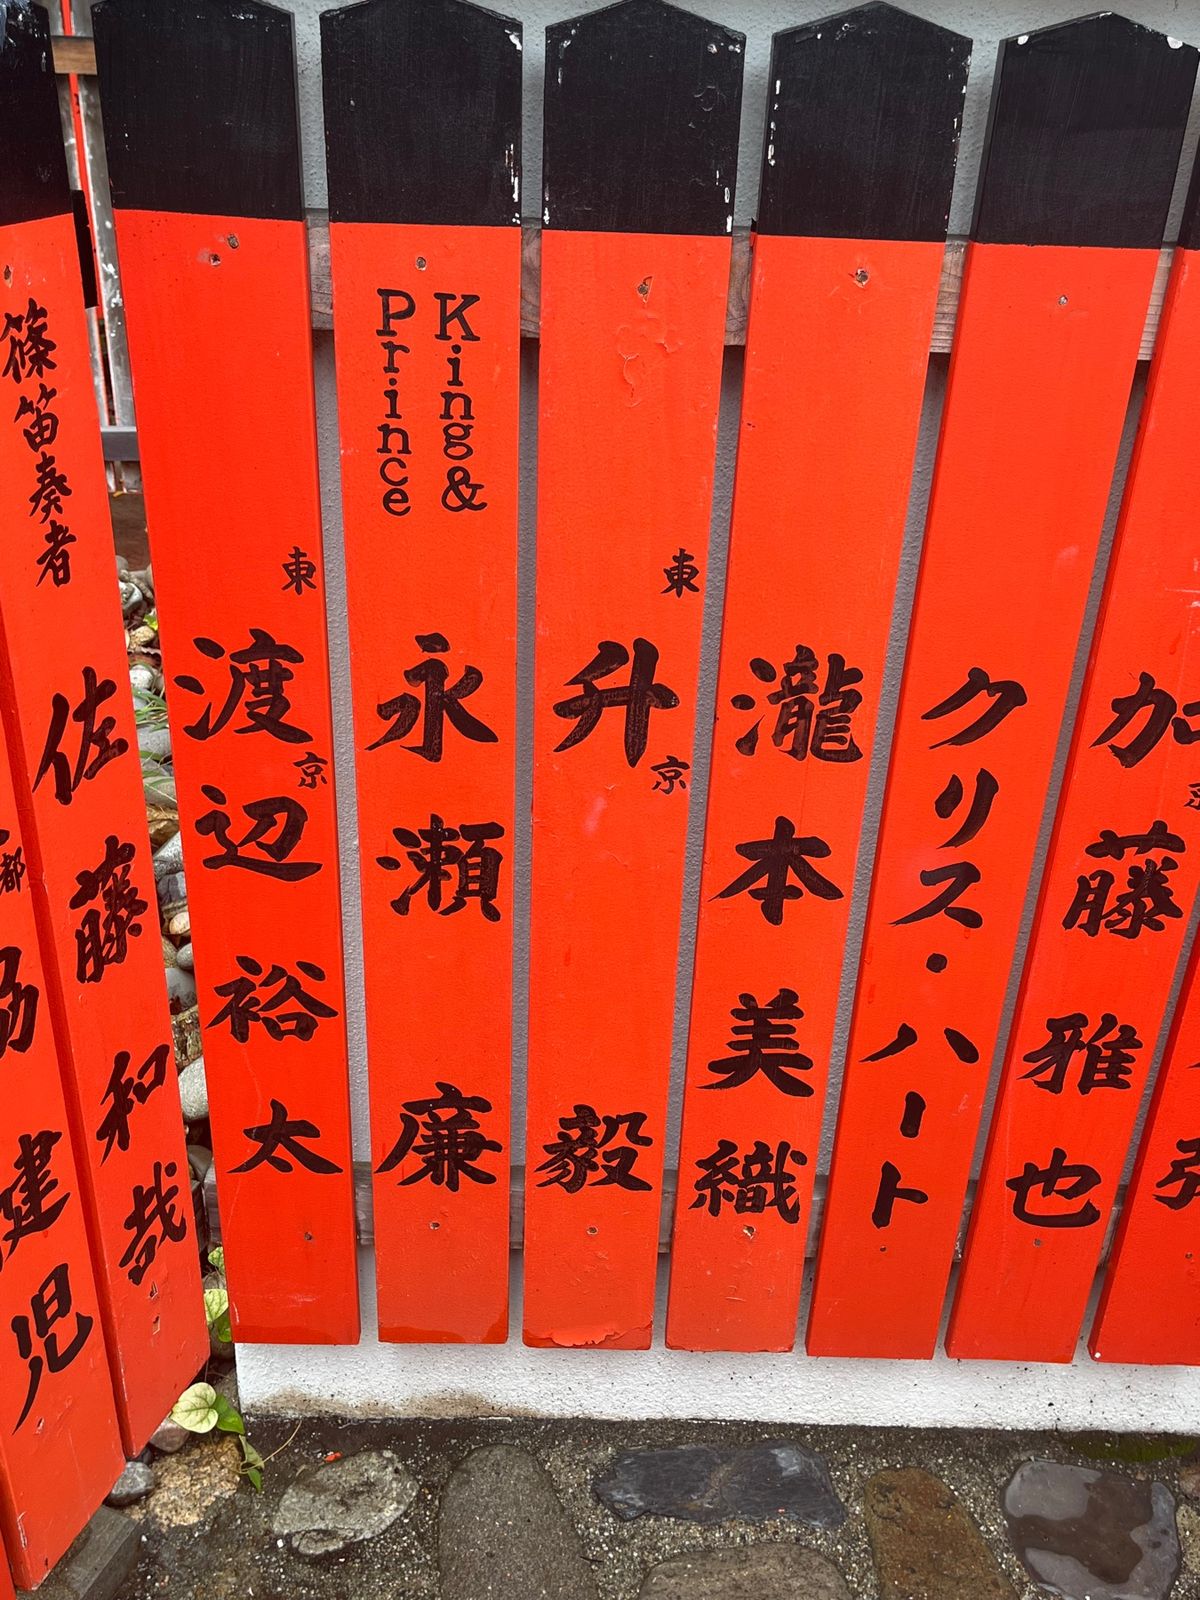 加藤雅也
クリス・ハート
瀧本美織
東京
升毅
King&
Prince
永瀬廉
東京
渡辺裕太
篠笛奏者
佐藤和哉
都
健児